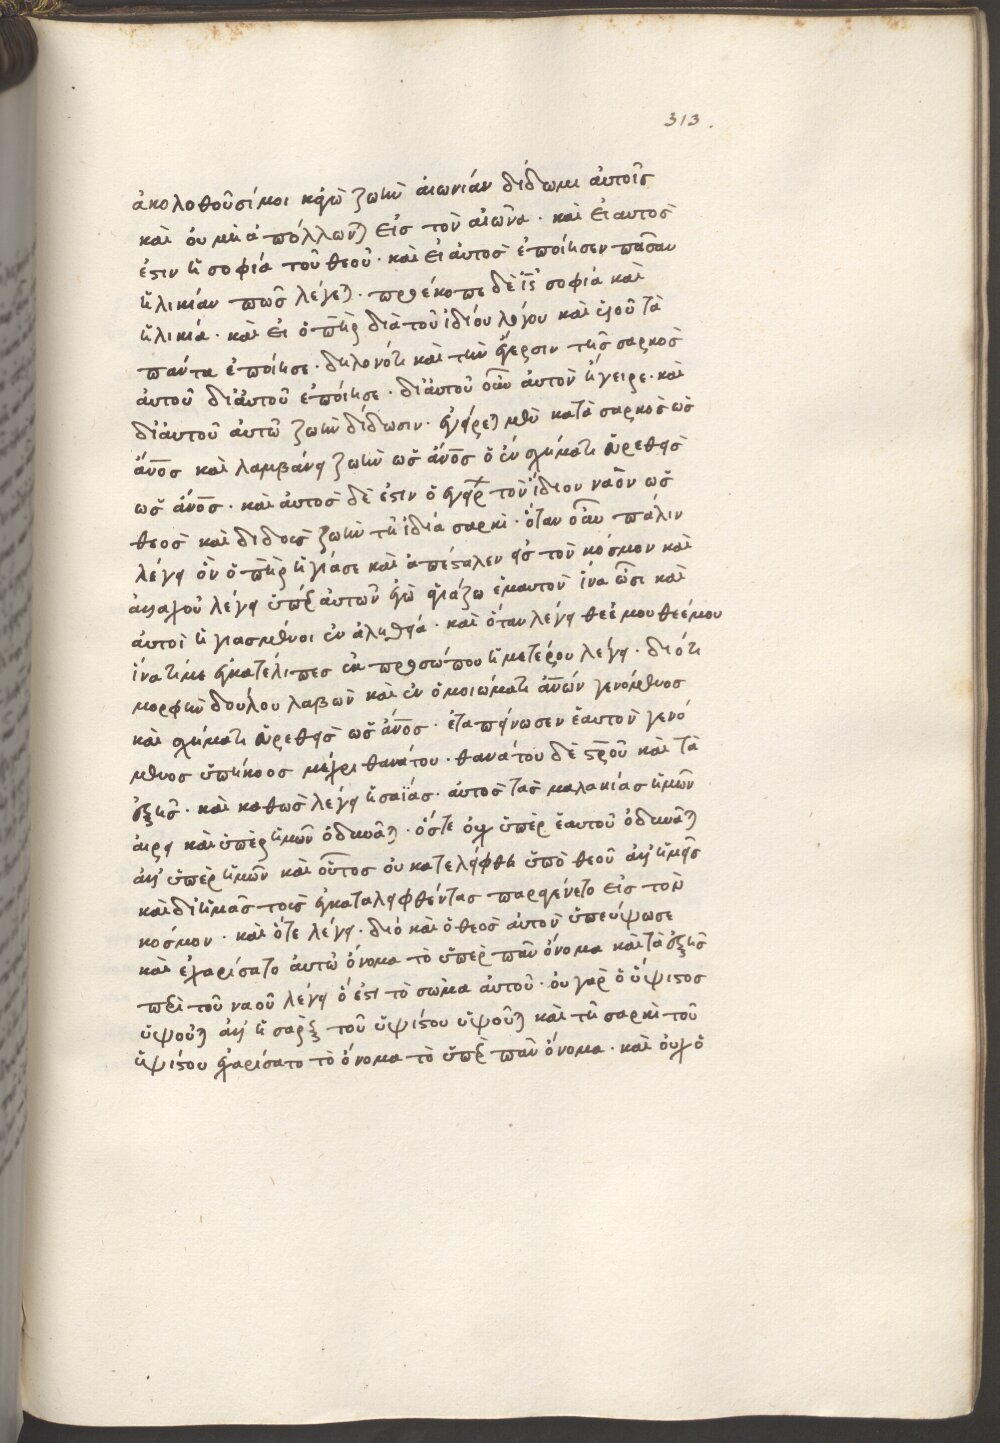 313.
ἀκολοθοῦσί μοι κἀγὼ ζωὴν αἰωνίαν δίδωμι ἀυτοῖς
καὶ ὀυ μὴ ἀπόλλωνται εἰς τὸν ἀιῶνα · καὶ ἐι αυτὸς
ἐστιν ἡ σοφία τοῦ θεοῦ · καὶ ἐι ἀυτὸς ἐποίησεν πᾶσαν
ἡλικίαν πῶς λέγεται · προέκοπε δὲ ἰς σοφία καὶ
ἡλικία · καὶ ἐι ὁ πῆρ διὰ τοῦ ἰδίου λόγου καὶ ἰησοῦ τὰ
πάντα ἐποίησε · δηλονότι καὶ τὴν ἔγερσιν τῆς σαρκὸς
ἀυτοῦ δι ἀυτοῦ ἐποίησε · δι ἀυτοῦ οὖν ἀυτὸν ἤγειρε · καὶ
δι ἀυτοῦ αυτῶ ζωὴν δίδωσιν · ἐγείρεται μὲν κατὰ σαρκὸς ὡς
ἄνος καὶ λαμβάνει ζωὴν ὡς ἄνος ὁ ἐν σχήματι ἑυρεθεὶς
ὡς ἄνος · καὶ ἀυτὸς δέ ἐστιν ὁ ἐγείρων τὸν ἴδιον ναὸν ὡς
θεὸς καὶ διδοὺς ζωὴν τῆ ἰδία σαρκὶ · ὅταν οὖν πάλιν
λέγει ὃν ὁ πῆρ ἡγίασε καὶ ἀπέσταλεν εἰς τὸν κόσμον καὶ
ἀλλαχοῦ λέγει ὑπὲρ ἀυτῶν ἐγὼ ἁγιάζω ἐμαυτὸν ἵνα ὦσι καὶ
ἀυτοὶ ἡγιασμένοι ἐν ἀληθεία · καὶ ὅταν λέγει θεέ μου θεέ μου
ἵνα τί με ἐγκατέλιπες ἐκ προσώπου ἡμετέρου λέγει · διότι
μορφὴν δούλου λαβὼν καὶ ἐν ὁμοιώματι ἀνων γενόμενος
καὶ σχήματι ἑυρεθεὶς ὡς ἄνος · ἐταπείνωσεν ἑαυτὸν γενό
μενος ὑπήκοος μέχρι θανάτου · θανάτου δὲ στροῦ καὶ τὰ
ἑξῆς · καὶ καθὼς λέγει ἡσαΐας · ἀυτὸς τὰς μαλακίας ἡμῶν
ἀιρει καὶ ὑπὲρ ἡμῶν ὀδυνᾶται · ὥστε ὀυχ ὑπὲρ ἑαυτοῦ ὀδυνᾶται
ἀλλ ὑπὲρ ἡμῶν καὶ οὗτος ὀυ κατελείφθη ὑπὸ θεοῦ ἀλλ ἡμεῖς
καὶ δι ἡμᾶς τοὺς ἐγκαταλειφθέντας παρεγένετο εἰς τὸν
κόσμον · καὶ ὅτε λέγει · διό καὶ ὁ θεὸς αυτον ὑπερύψωσε
καὶ ἐχαρίσατο ἀυτῶ ὄνομα τὸ ὑπὲρ πᾶν ὄνομα καὶ τὰ ἑξῆς
περὶ τοῦ ναοῦ λέγει ὅ ἐστι τὸ σῶμα ἀυτοῦ · ὀυ γὰρ ὁ ὕψιστος
ὑψοῦται ἀλλ ἡ σὰρξ τοῦ ὑψίστου ὑψοῦται καὶ τῆ σαρκὶ τοῦ
ὑψίστου ἐχαρίσατο τὸ ὄνομα τὸ ὑπὲρ πᾶν ὄνομα · καὶ ὀυχ ὁ